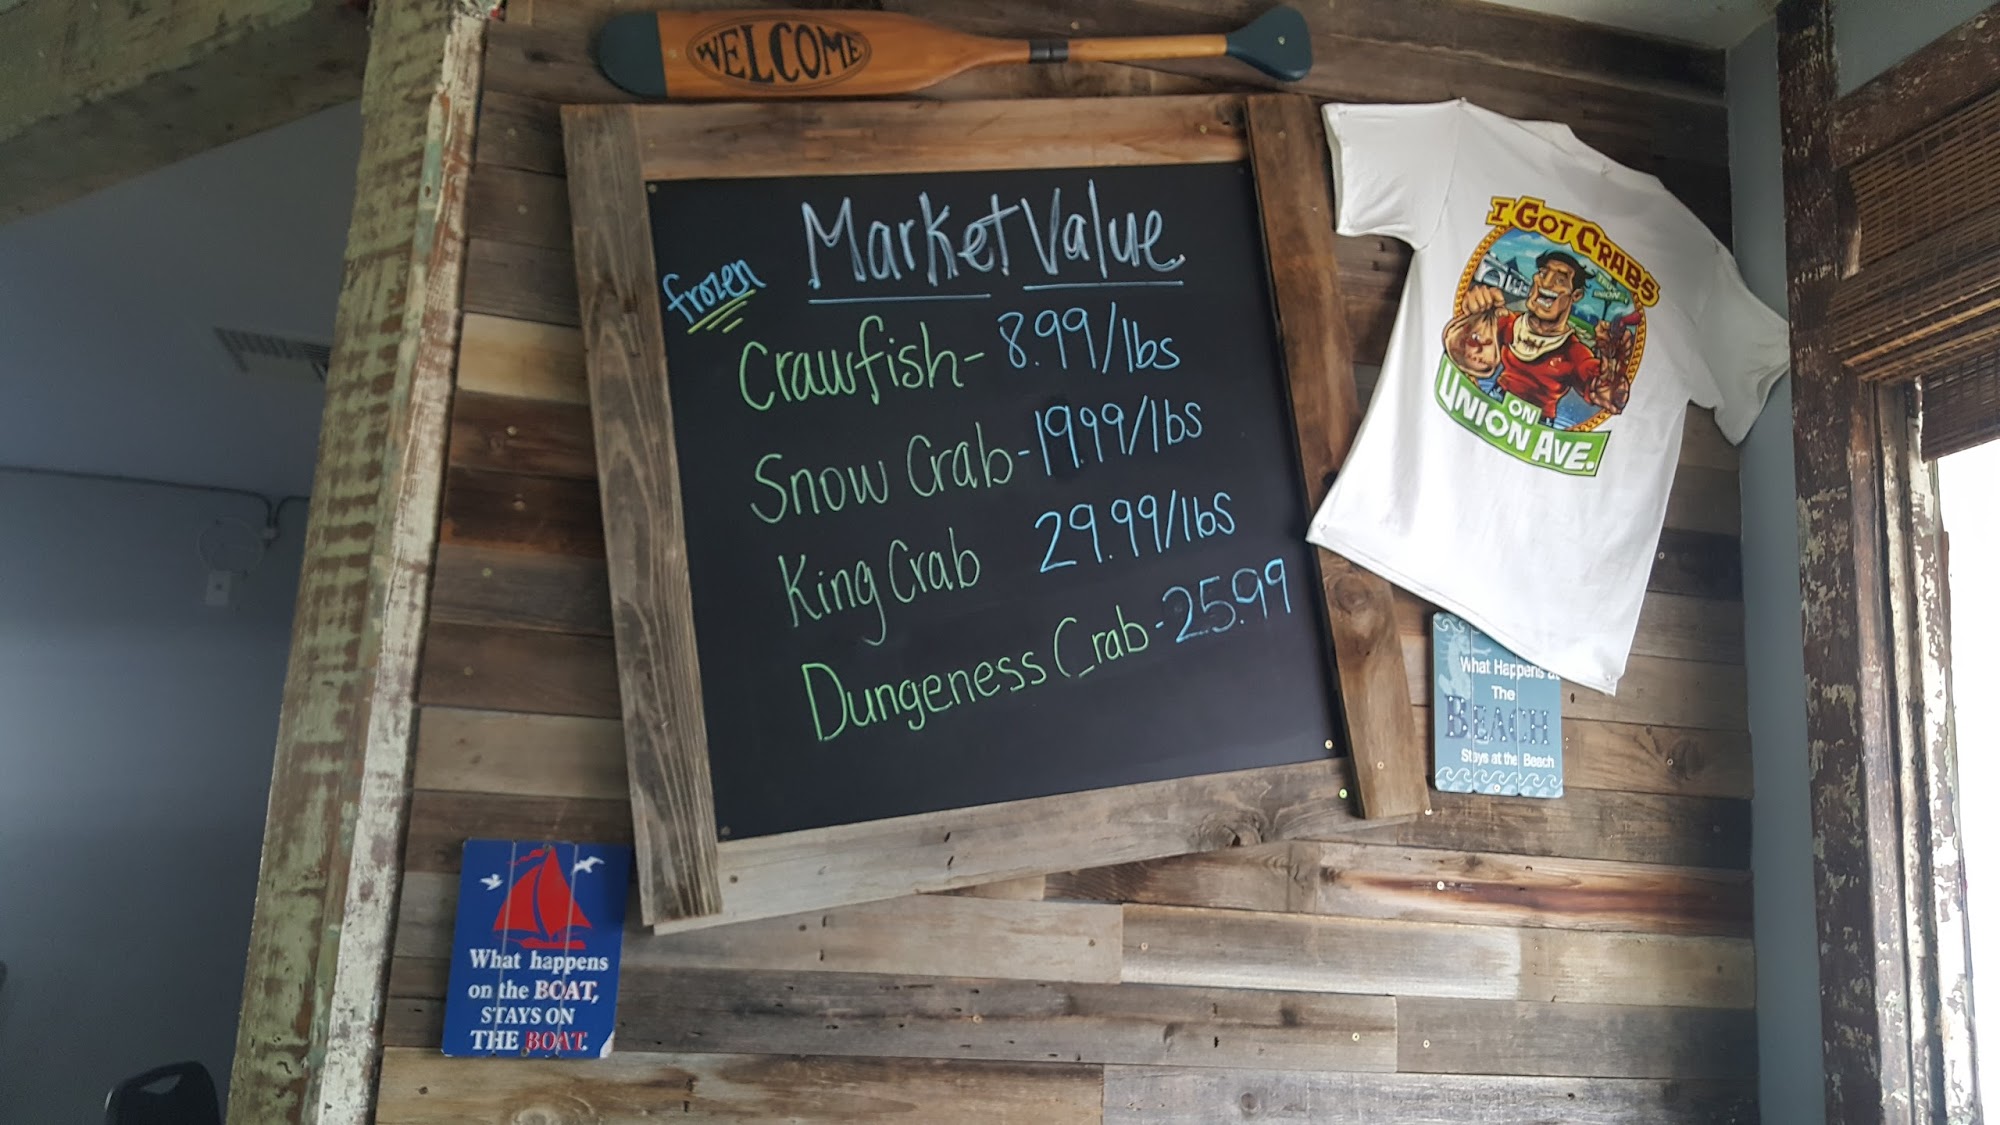 WELCOME
Market Value
frozen
Crawfish- 8.99/lbs
Snow Crab- 19.99/lbs
King Crab 29.99/lbs
Dungeness Crab- 25.99
I GOT CRABS
ON
UNION AVE.
What Happens at
The
BEACH
Stays at the Beach
What happens
on the BOAT,
STAYS ON
THE BOAT.